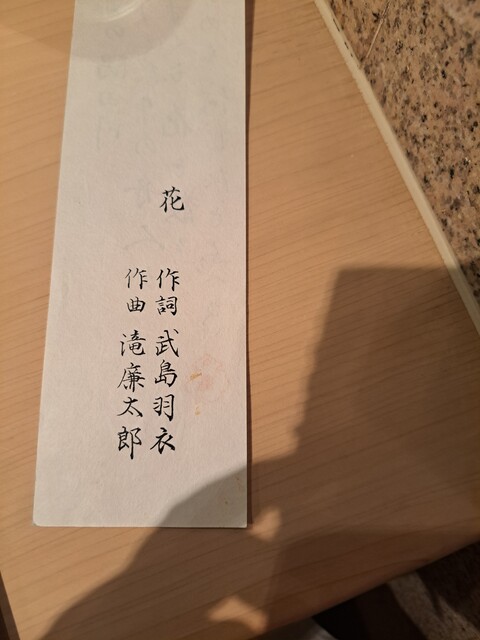 花
作詞 武島羽衣
作曲 滝廉太郎